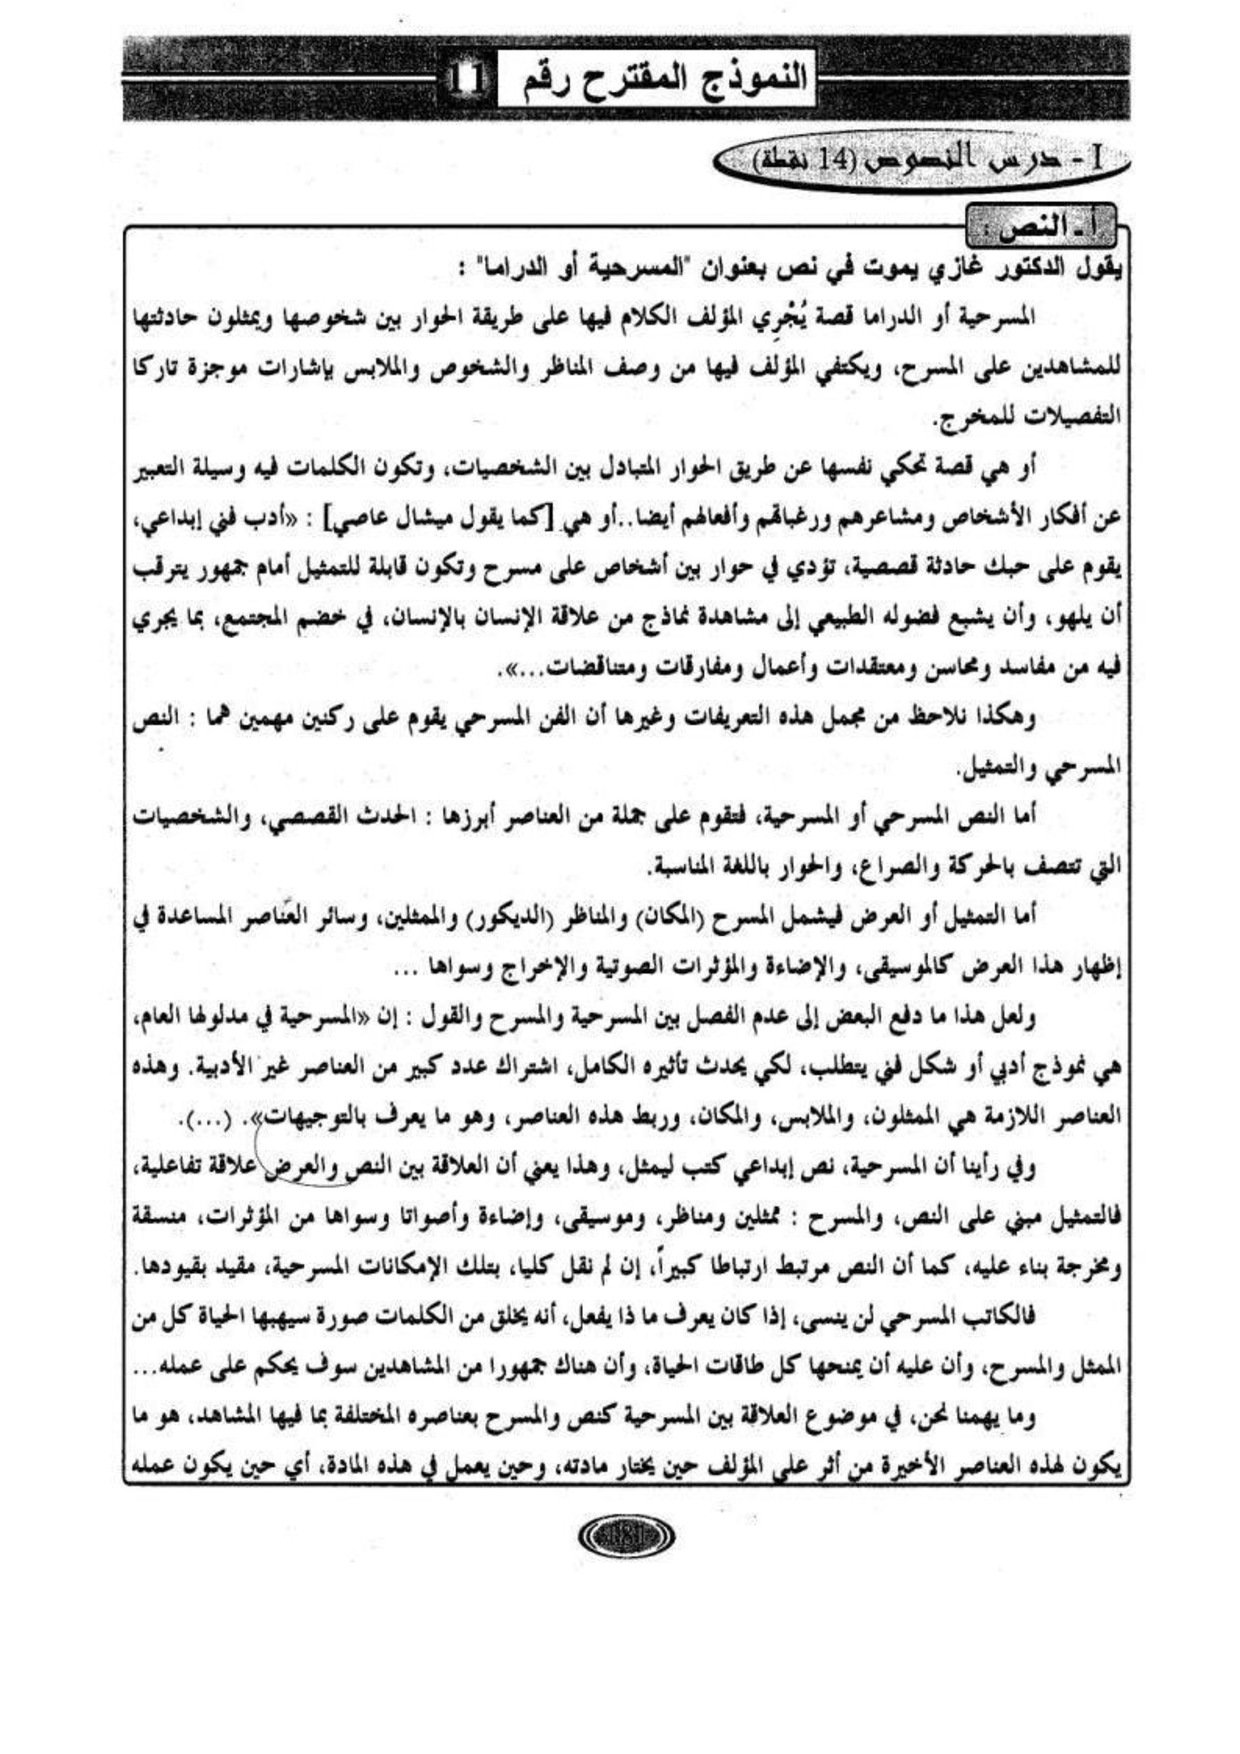 النموذج المقترح رقم 11
I - درس النصوص (14 نقطة)
أ ـ النص :
يقول الدكتور غازي يموت في نص بعنوان "المسرحية أو الدراما" :
المسرحية أو الدراما قصة يُجْرِي المؤلف الكلام فيها على طريقة الحوار بين شخوصها ويمثلون حادثتها
للمشاهدين على المسرح، ويكتفي المؤلف فيها من وصف المناظر والشخوص والملابس بإشارات موجزة تاركا
التفصيلات للمخرج.
أو هي قصة تحكي نفسها عن طريق الحوار المتبادل بين الشخصيات، وتكون الكلمات فيه وسيلة التعبير
عن أفكار الأشخاص ومشاعرهم ورغباتهم وأفعالهم أيضا..أو هي [كما يقول ميشال عاصي] : «أدب فني إبداعي،
يقوم على حبك حادثة قصصية، تؤدي في حوار بين أشخاص على مسرح وتكون قابلة للتمثيل أمام جمهور يترقب
أن يلهو، وأن يشبع فضوله الطبيعي إلى مشاهدة نماذج من علاقة الإنسان بالإنسان، في خضم المجتمع، بما يجري
فيه من مفاسد ومحاسن ومعتقدات وأعمال ومفارقات ومتناقضات...».
وهكذا نلاحظ من مجمل هذه التعريفات وغيرها أن الفن المسرحي يقوم على ركنين مهمين هما : النص
المسرحي والتمثيل.
أما النص المسرحي أو المسرحية، فتقوم على جملة من العناصر أبرزها : الحدث القصصي، والشخصيات
التي تتصف بالحركة والصراع، والحوار باللغة المناسبة.
أما التمثيل أو العرض فيشمل المسرح (المكان) والمناظر (الديكور) والممثلين، وسائر العناصر المساعدة في
إظهار هذا العرض كالموسيقى، والإضاءة والمؤثرات الصوتية والإخراج وسواها ...
ولعل هذا ما دفع البعض إلى عدم الفصل بين المسرحية والمسرح والقول : إن «المسرحية في مدلولها العام،
هي نموذج أدبي أو شكل فني يتطلب، لكي يحدث تأثيره الكامل، اشتراك عدد كبير من العناصر غير الأدبية. وهذه
العناصر اللازمة هي الممثلون، والملابس، والمكان، وربط هذه العناصر، وهو ما يعرف بالتوجيهات». (...).
وفي رأينا أن المسرحية، نص إبداعي كتب ليمثل، وهذا يعني أن العلاقة بين النص والعرض علاقة تفاعلية،
فالتمثيل مبني على النص، والمسرح : ممثلين ومناظر، وموسيقى، وإضاءة وأصواتا وسواها من المؤثرات، منسقة
ومخرجة بناء عليه، كما أن النص مرتبط ارتباطا كبيراً، إن لم نقل كليا، بتلك الإمكانات المسرحية، مقيد بقيودها.
فالكاتب المسرحي لن ينسى، إذا كان يعرف ما ذا يفعل، أنه يخلق من الكلمات صورة سيهبها الحياة كل من
الممثل والمسرح، وأن عليه أن يمنحها كل طاقات الحياة، وأن هناك جمهورا من المشاهدين سوف يحكم على عمله...
وما يهمنا نحن، في موضوع العلاقة بين المسرحية كنص والمسرح بعناصره المختلفة بما فيها المشاهد، هو ما
يكون لهذه العناصر الأخيرة من أثر على المؤلف حين يختار مادته، وحين يعمل في هذه المادة، أي حين يكون عمله